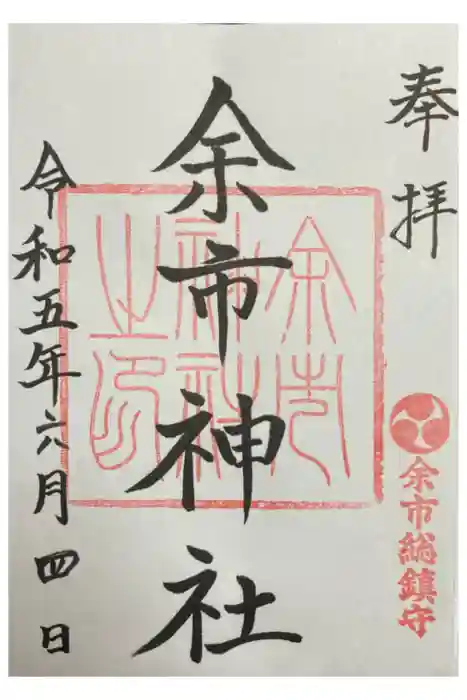 奉拝
余市総鎮守
余市神社
余市神社之印
令和五年六月四日